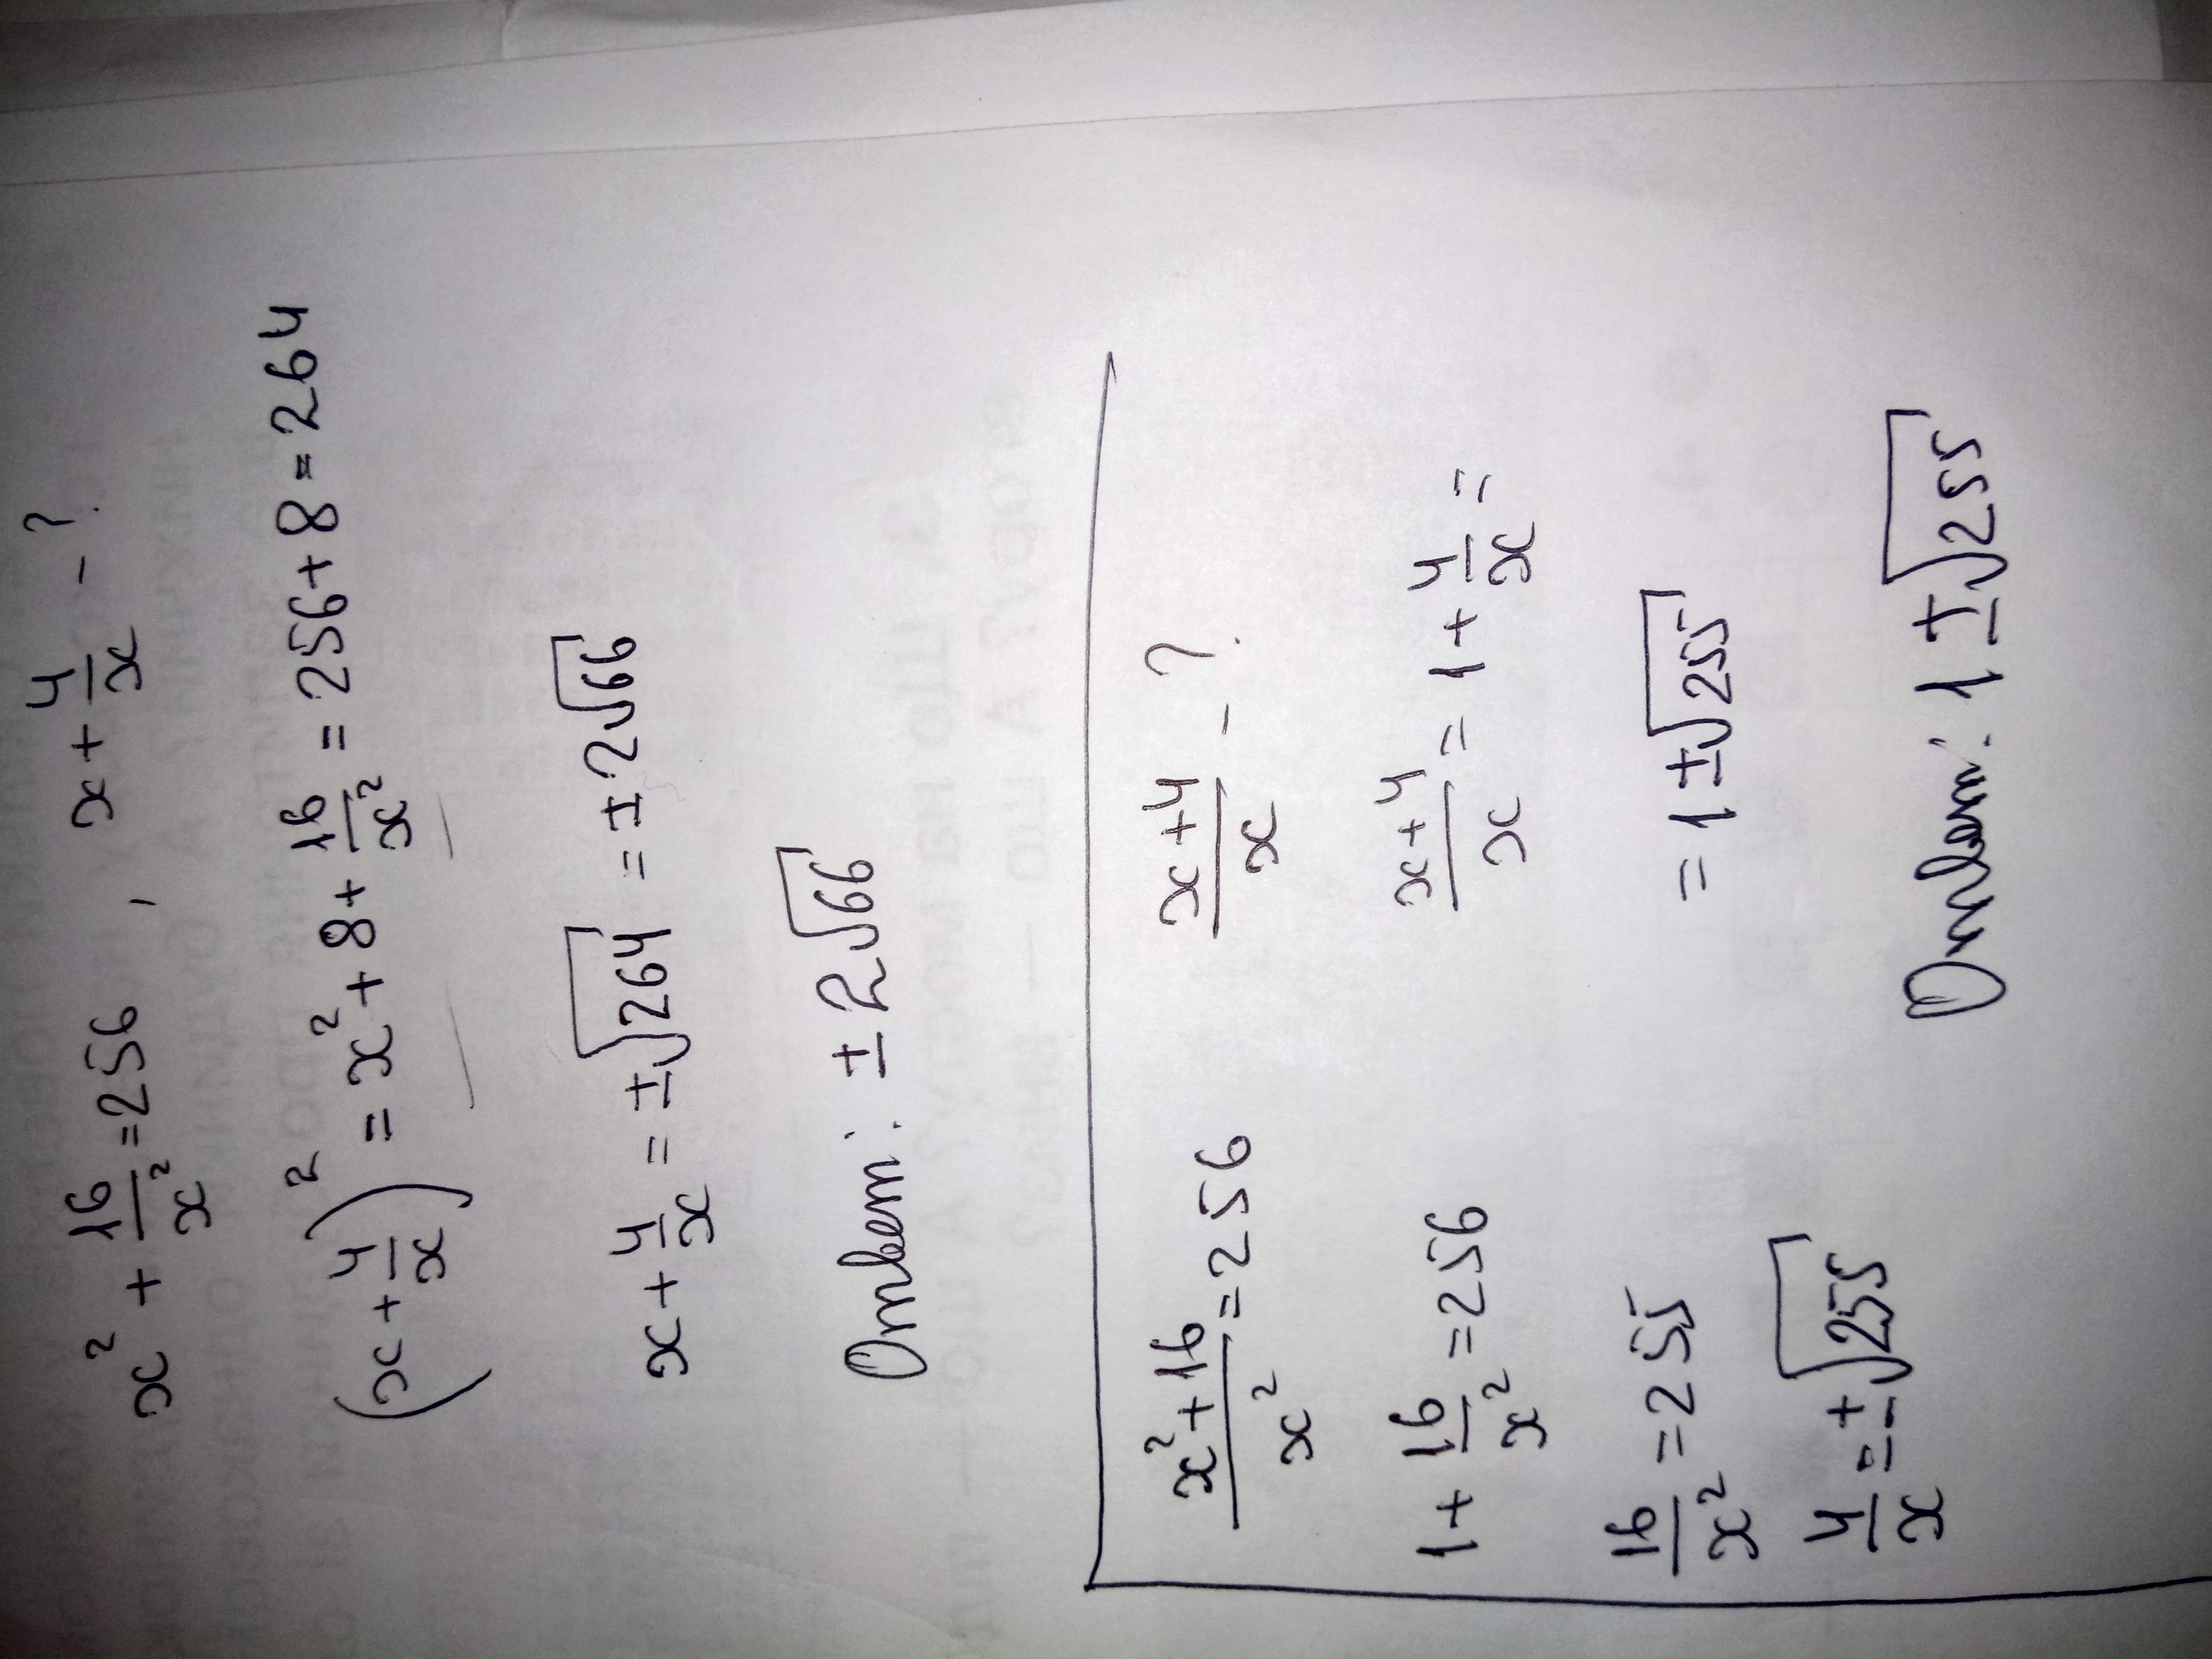 x² + 16/x² = 256, x + 4/x - ?
(x + 4/x)² = x² + 8 + 16/x² = 256 + 8 = 264
x + 4/x = ±√264 = ±2√66
Ответ: ±2√66
(x² + 16)/x² = 256
1 + 16/x² = 256
16/x² = 255
4/x = ±√255
(x + 4)/x - ?
(x + 4)/x = 1 + 4/x =
= 1 ± √255
Ответ: 1 ± √255